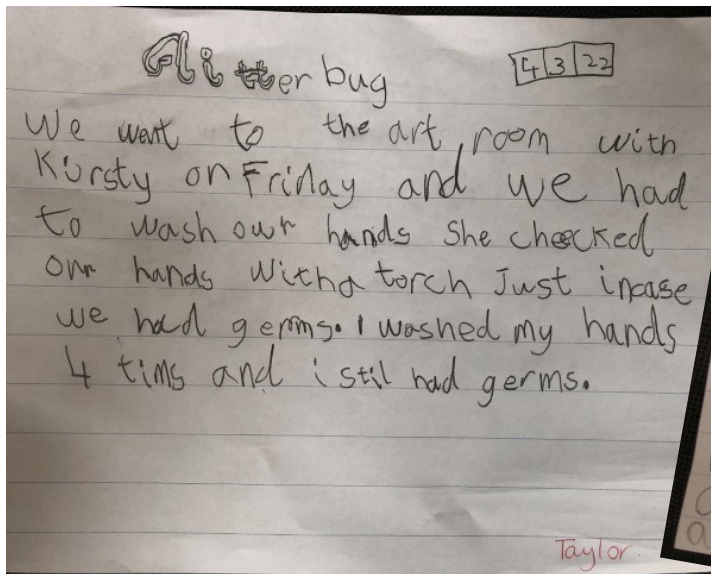 Glitterbug
4 3 22
We want to the art room with
Kirsty on Friday and we had
to wash our hands She checked
our hands with a torch Just incase
we had germs. I washed my hands
4 tims and i stil had germs.
Taylor.